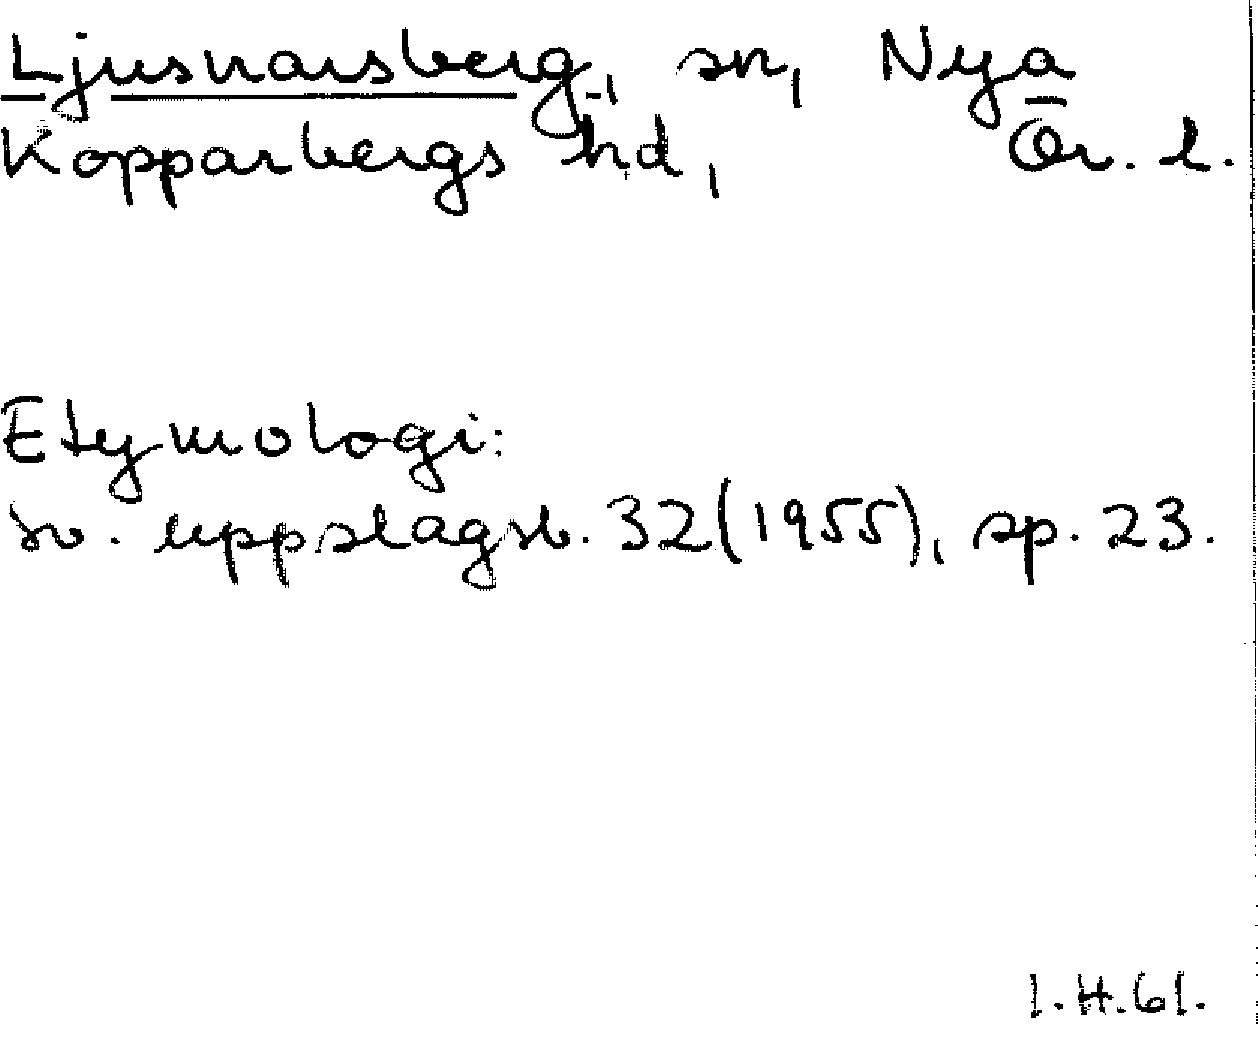 Ljusnarsberg, sn, Nya
Kopparbergs hd, Ör. l.
Etymologi:
Sv. uppslagsb. 32 (1955), sp. 23.
I.H.61.